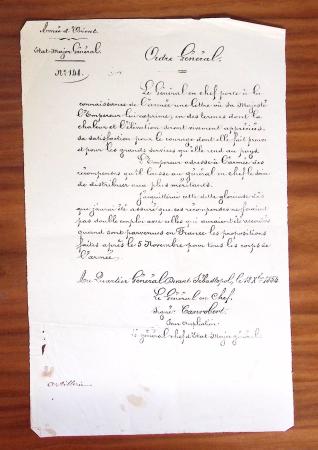 Armée d'Orient
Etat-Major Général
N° 141.
Ordre Général.
Le Général en chef porte à la
connaissance de l'armée une lettre où Sa Majesté
l'Empereur lui exprime, en des termes dont la
chaleur et l'élévation seront vivement appréciées,
sa satisfaction pour le courage dont elle fait preuve
et pour les grands services qu'elle rend au pays.
L'Empereur adresse à l'armée des
récompenses qu'il laisse au général en chef le soin
de distribuer aux plus méritants.
J'acquitterai cette dette glorieuse dès
que j'aurai été assuré que ces récompenses ne feraient
pas double emploi avec celles qui auraient été accordées
quand sont parvenues en France les propositions
faites après le 5 Novembre pour tous les corps de
l'armée.
Au Quartier Général devant Sébastopol, le 18 Xbre 1854
Le Général en Chef,
Signé: Canrobert.
Pour Ampliation
Le général chef d'Etat-Major général
Artillerie